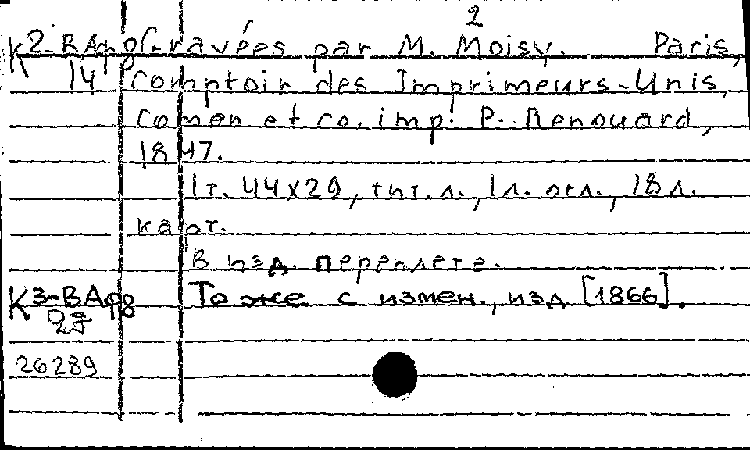 2
К2-ВАфр gravées par M. Moisy. Paris,
14 Comptoir des Imprimeurs-Unis,
Comon et co, imp. P. Renouard,
1847.
1 т. 44x29, тит. л., 1 л. огл., 18 л.
карт.
В изд. переплете.
К3-ВАфр То же с измен., изд. [1866].
29
26289